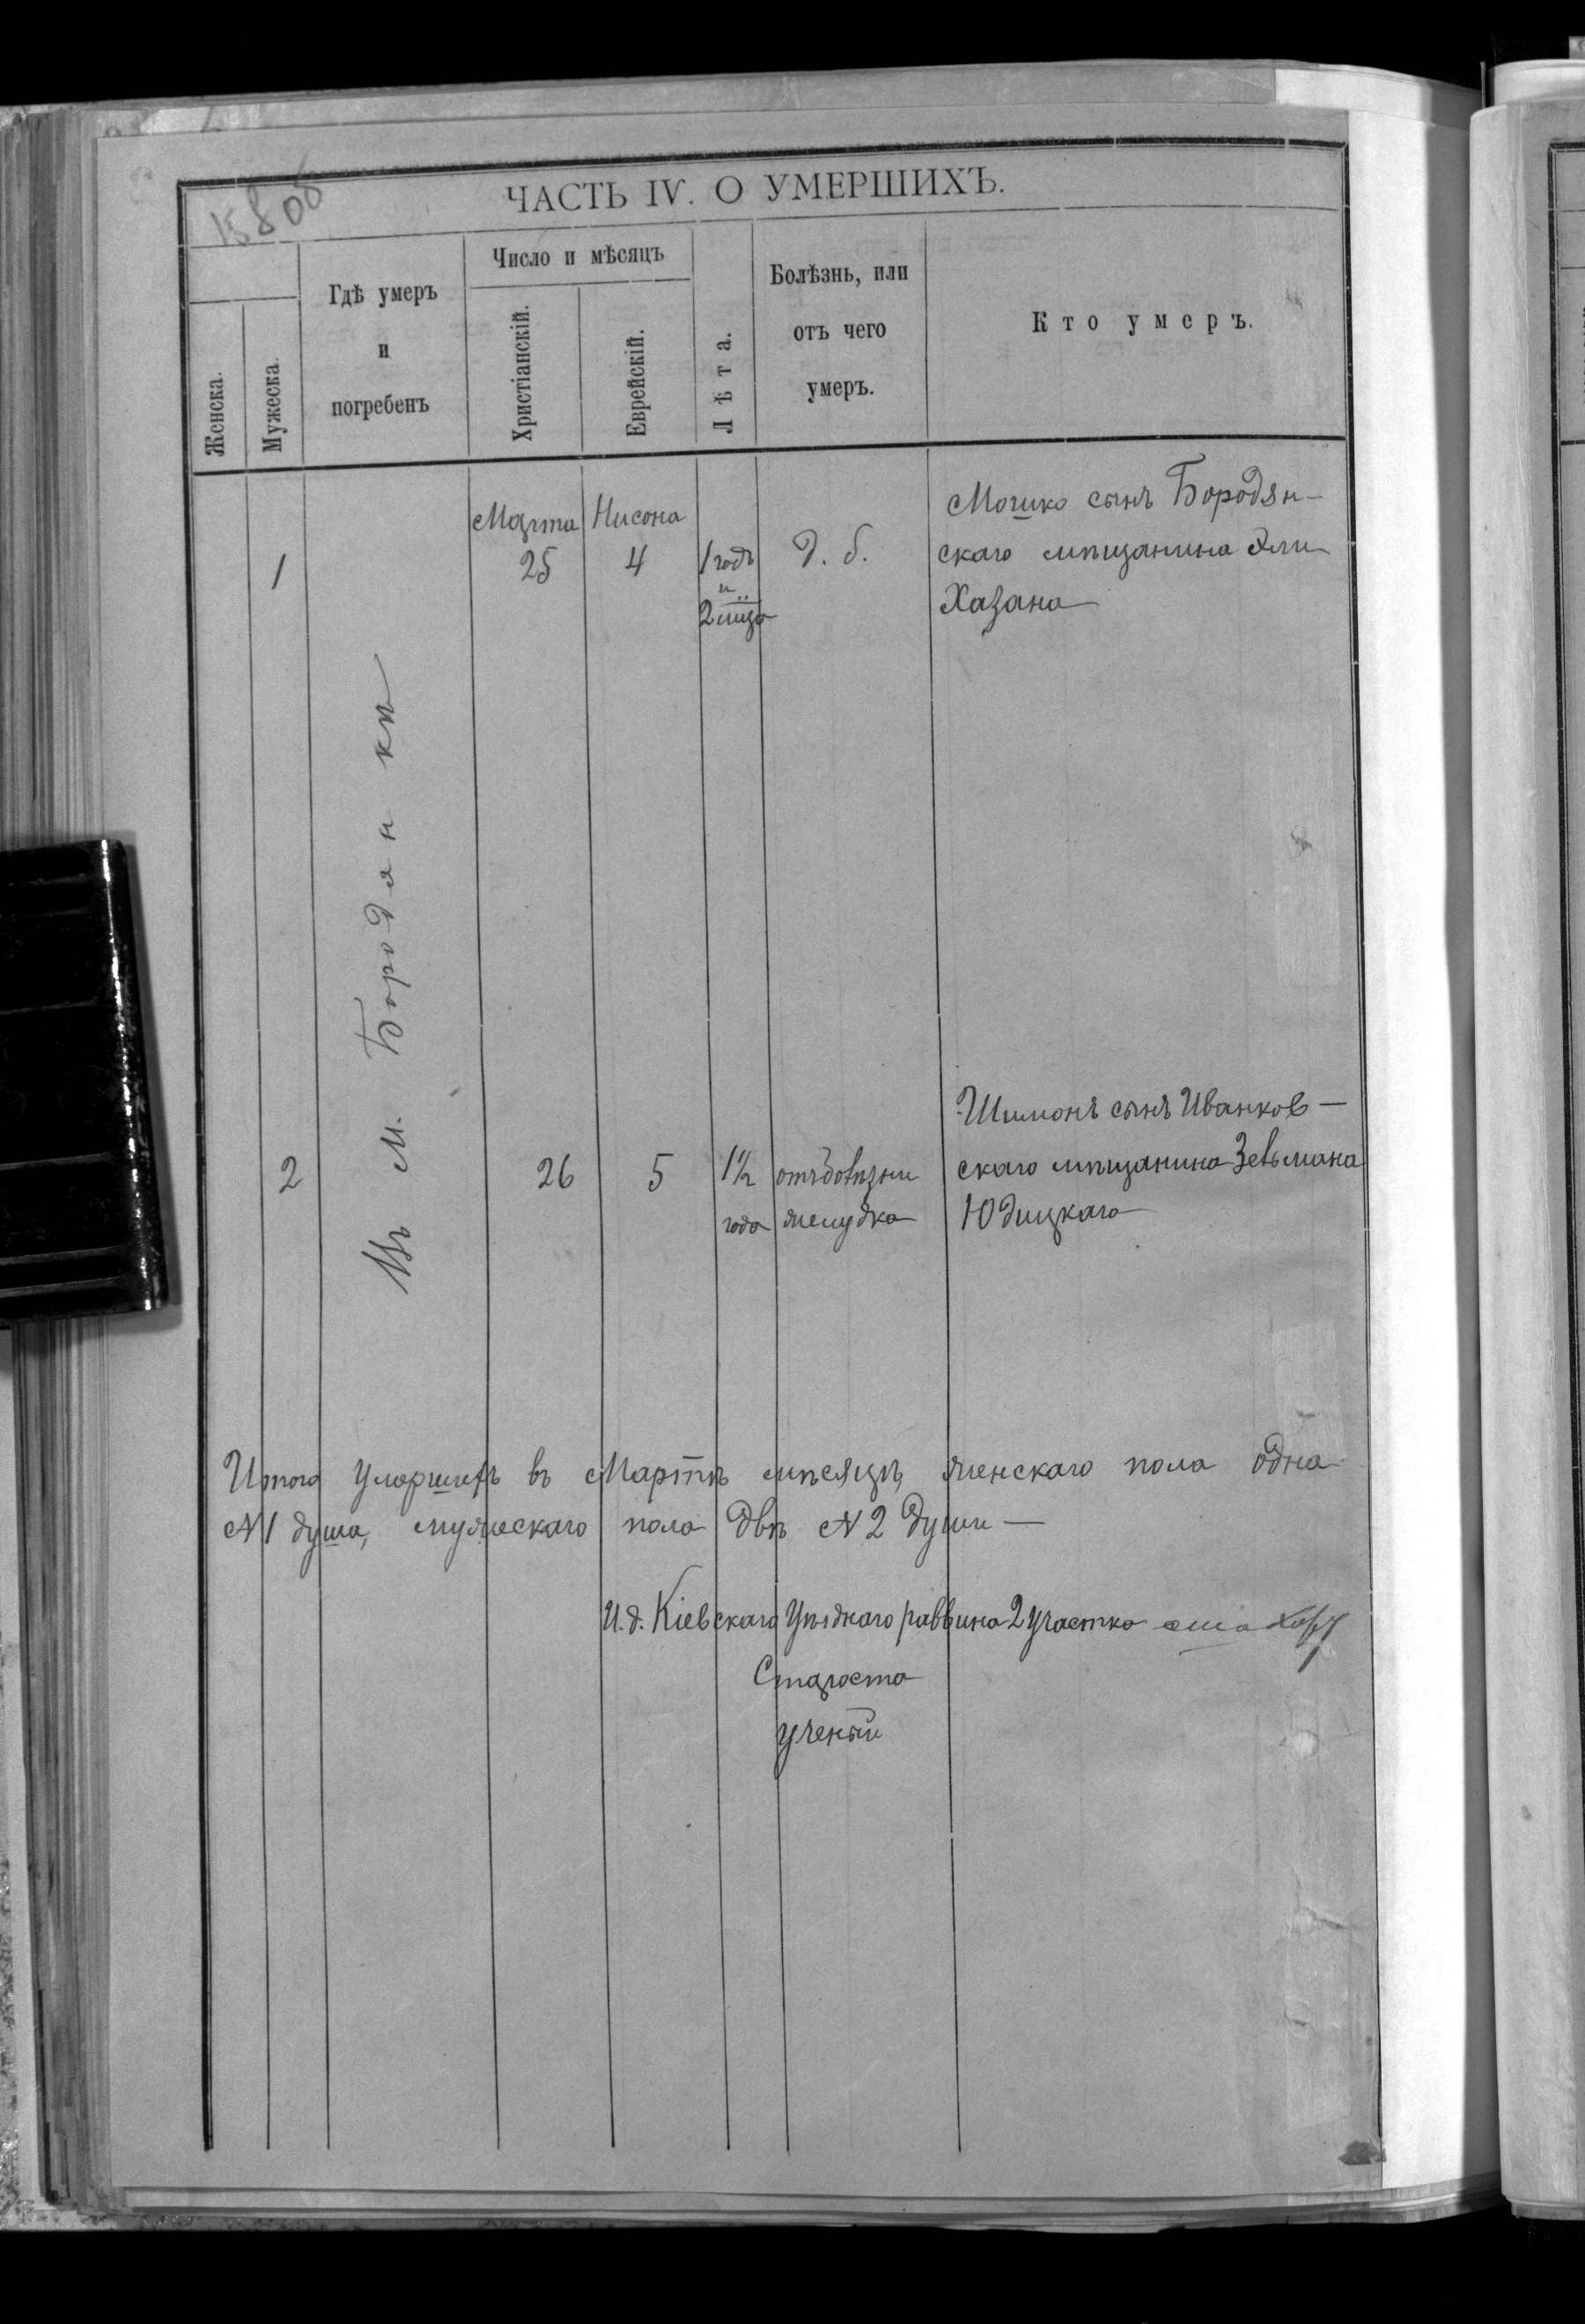 ЧАСТЬ IV. О УМЕРШИХЪ.
Женска.
Мужеска.
Гдѣ умеръ
и
погребенъ
Число и мѣсяцъ
Христіанскій.
Еврейскій.
Лѣта.
Болѣзнь, или
отъ чего
умеръ.
Кто умеръ.
Въ М. Бородянкѣ
Марта Нисона
1 25 4 1 годъ
и
2 мца
д. б.
Мошко сынъ Бородян-
скаго мѣщанина Эли
Хазана
2 26 5 1½
года
отъ болѣзни
желудка
Шимонъ сынъ Иванков-
скаго мѣщанина Зельмана
Юдицкаго
Итого умершихъ въ Мартѣ мѣсяцѣ, женскаго пола одна
N 1 душа, мужескаго пола двѣ N 2 души —
И. д. Кіевскаго Уѣзднаго раввина 2 участка
Староста
Ученый